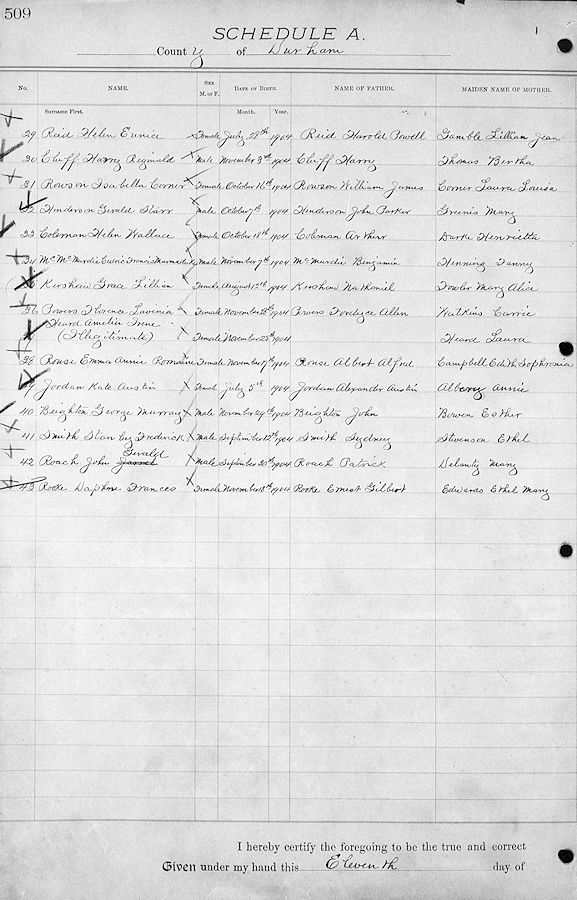 509
SCHEDULE A.
County of Durham
No. NAME. SEX M. or F. DATE OF BIRTH. NAME OF FATHER. MAIDEN NAME OF MOTHER.
Surname First. Month. Year.
29 Reid Helen Eunice Female July 28th 1904 Reid Harold Powell Gamble Lillian Jean
30 Cluff Harry Reginald Male November 3rd 1904 Cluff Harry Thomas Bertha
31 Rowson Isabella Corner Female October 16th 1904 Rowson William James Corner Laura Louisa
32 Henderson Gerald Starr Male October 7th 1904 Henderson John Parker Mary
33 Coleman Helen Wallace Female October 18th 1904 Coleman Arthur Darke Henrietta
34 Mc Murdie Francis Male November 7th 1904 Mc Murdie Benjamin Henning Fanny
Kershaw Grace Lillian Female August 1904 Kershaw Nathaniel Fowler Mary Alice
36 Powers Florence Lavinia Female November 1904 Powers Fordyce Allen Watkins Carrie
Heard Amelia Irene
(Illegitimate) Female November 25th 1904 Heard Laura
38 Rouse Emma Annie Romaine Female November 7th 1904 Rouse Albert Alfred Campbell Edith Sophronia
39 Jordan Kate Austin July 5th 1904 Jordan Alexander Austin Annie
40 Beighton George Murray Male November 29th 1904 Beighton John Bowen Esther
41 Smith Stanley Frederick Male September 12th 1904 Smith Sydney Stevenson Ethel
Gerald
42 Roach John James Male September 30th 1904 Roach Patrick Delanty Mary
43 Rooke Daphne Frances Female November 18th 1904 Rooke Ernest Gilbert Edwards Ethel Mary
I hereby certify the foregoing to be the true and correct
Given under my hand this Eleventh day of